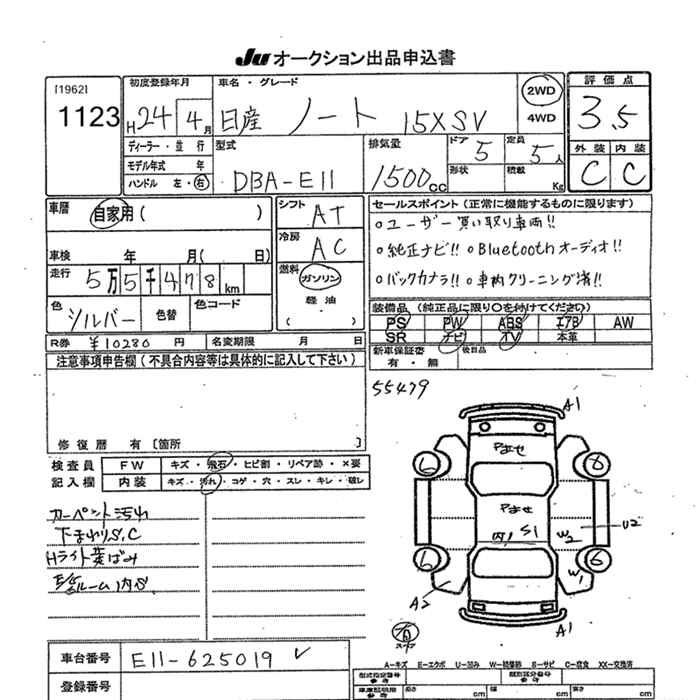 JU オークション出品申込書
[1962]
1123
初度登録年月
H24年 4月
車名・グレード
日産 ノート 15X SV
2WD
4WD
評価点
3.5
外装 内装
C C
ディーラー・並行
モデル年式 年
ハンドル 左・右
型式
DBA-E11
排気量
1500cc
ドア 5
形状
定員 5人
積載 Kg
車歴
自家用( )
車検 年 月( 日)
走行 5万5千478km
色 シルバー
色替
色コード
シフト AT
冷房 AC
燃料
ガソリン
軽油
( )
セールスポイント(正常に機能するものに限ります)
○ユーザー買い取り車両!!
○純正ナビ!! ○Bluetoothオーディオ!!
○バックカメラ!! ○車内クリーニング済!!
装備品(純正品に限り○を付けてください)
PS PW ABS エアB AW
SR ナビ TV 本革
R券 ¥10280 円
名変期限 月 日
新車保証書
有・無
後日品
注意事項申告欄(不具合内容等は具体的に記入して下さい)
55479
修復歴 有[箇所 ]
検査員
記入欄
FW キズ・飛石・ヒビ割・リペア跡・×要
内装 キズ・汚れ・コゲ・穴・スレ・キレ・破レ
カーペット汚れ
下まわりS,C
Hライト黄ばみ
ルーム内
A1
Pませ
6 8
Pませ
S1
U2
W2
6 6
W1
A2
A1
有
スペア
車台番号 E11-625019
登録番号
A-キズ E-エクボ U-凹み W-補修跡 S-サビ C-腐食 XX-交換済
型式指定番号
類別区分番号
長さ cm
幅 cm
高さ cm